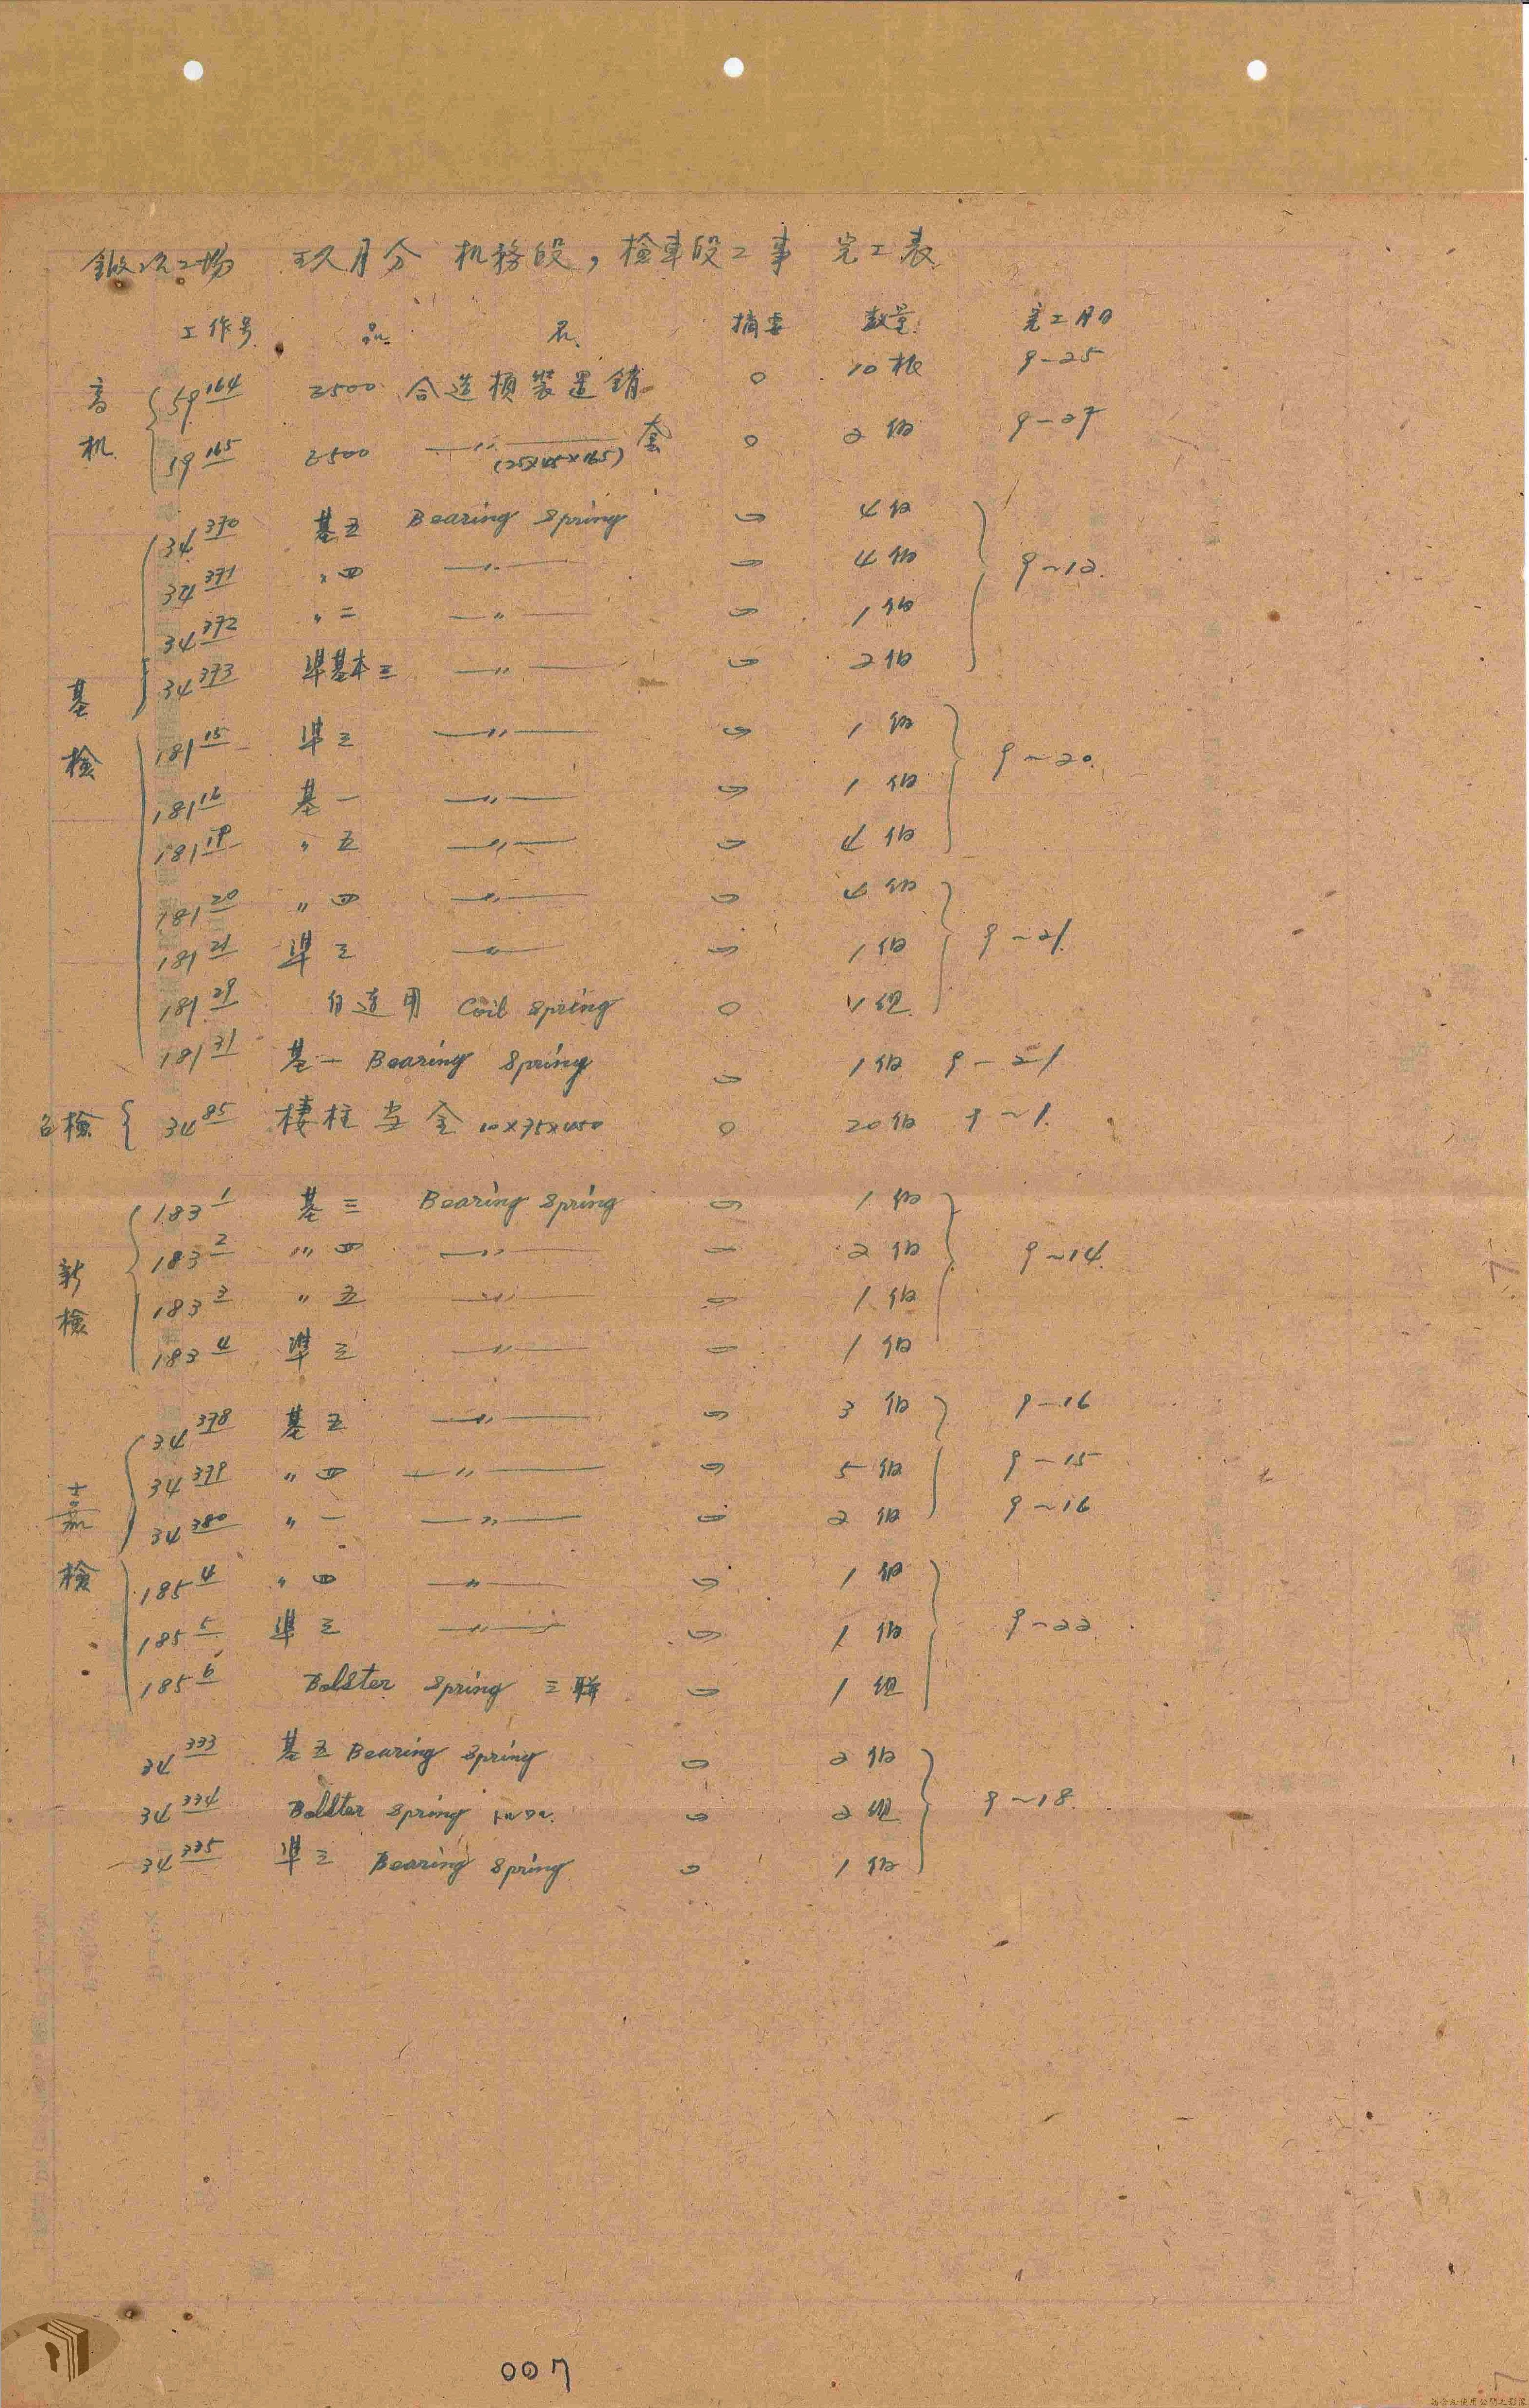 鍛冶工場 玖月分 机務段,檢車段工事 完工表
工作号 品 名 摘要 数量 完工月日
高机
59 164 2500 合造槓装置銷 ○ 10根 9-25
59 165 2500 —〃— 套 ○ 2個 9-27
(25×45×165)
基檢
34 370 基五 Bearing Spring 4個
34 371 〃四 —〃— 4個 9~12.
34 372 〃二 —〃— 1個
34 373 準基本三 —〃— 2個
181 15 準三 —〃— 1個
181 16 基一 —〃— 1個 9~20.
181 19 〃五 —〃— 4個
181 20 〃四 —〃— 4個
181 21 準三 —〃— 1個 9~21.
181 29 自連用 Coil Spring ○ 組
181 31 基一 Bearing Spring 1個 9-21
檢 34 85 柱当金 10×75×450 ○ 20個 9~1.
新檢
183 1 基三 Bearing Spring 1個
183 2 〃四 —〃— 2個 9~14.
183 3 〃五 —〃— 1個
183 4 準三 —〃— 1個
嘉檢
34 378 基五 —〃— 3個 9-16
34 379 〃四 —〃— 5個 9-15
34 380 〃一 —〃— 2個 9~16
185 4 〃四 —〃— 1個
185 5 準三 —〃— 1個 9~22.
185 6 Bolster Spring 三聯 1組
34 333 基五 Bearing Spring 2個
34 334 Bolster Spring 2組 9~18.
34 335 準三 Bearing Spring 1個
007
請合法使用公開之影像